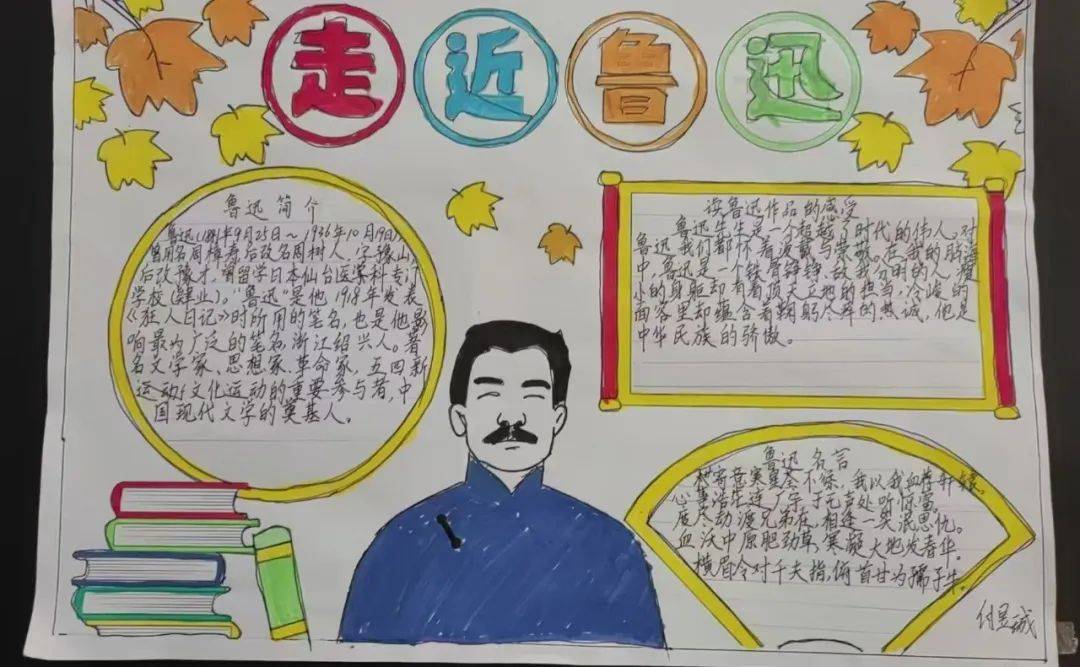 走近鲁迅
鲁迅简介
鲁迅(1881年9月25日～1936年10月19日),
曾用名周樟寿后改名周树人,字豫山,
后改豫才,曾留学日本仙台医学科专门
学校(肄业)。"鲁迅"是他1918年发表
《狂人日记》时所用的笔名,也是他影
响最为广泛的笔名,浙江绍兴人。著
名文学家、思想家、革命家,五四新
运动文化运动的重要参与者,中
国现代文学的奠基人。
读鲁迅作品的感受
鲁迅先生是一个超越了时代的伟人。对
鲁迅我们都怀着爱戴与崇敬。在我的脑海
中,鲁迅是一个铁骨铮铮,敌我分明的人,瘦
小的身躯却有着顶天立地的担当,冷峻的
面容里却蕴含着鞠躬尽瘁的热诚,他是
中华民族的骄傲。
鲁迅名言
寄意寒星荃不察,我以我血荐轩辕。
心事浩茫连广宇,于无声处听惊雷。
度尽劫渡兄弟在,相逢一笑泯恩仇。
血沃中原肥劲草,寒凝大地发春华。
横眉冷对千夫指,俯首甘为孺子牛。
付昱诚